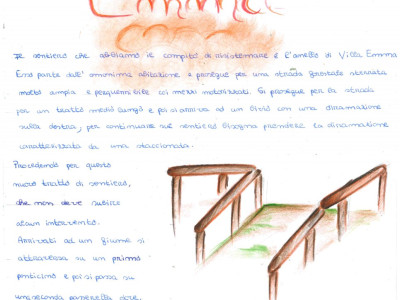 Emma
Il sentiero che abbiamo il compito di risistemare è l'anello di Villa Emma
Esso parte dall'omonima abitazione e prosegue per una strada forestale sterrata
molto ampia e percorribile coi mezzi motorizzati. Si prosegue per la strada
per un tratto medio lungo e poi si arriva ad un bivio con una diramazione
sulla destra, per continuare sul sentiero bisogna prendere la diramazione
caratterizzata da una staccionata.
Procedendo per questo
nuovo tratto di sentiero,
che non deve subire
alcun intervento.
Arrivati ad un fiume si
attraversa su un primo
ponticino e poi si passa su
una seconda passerella dove,